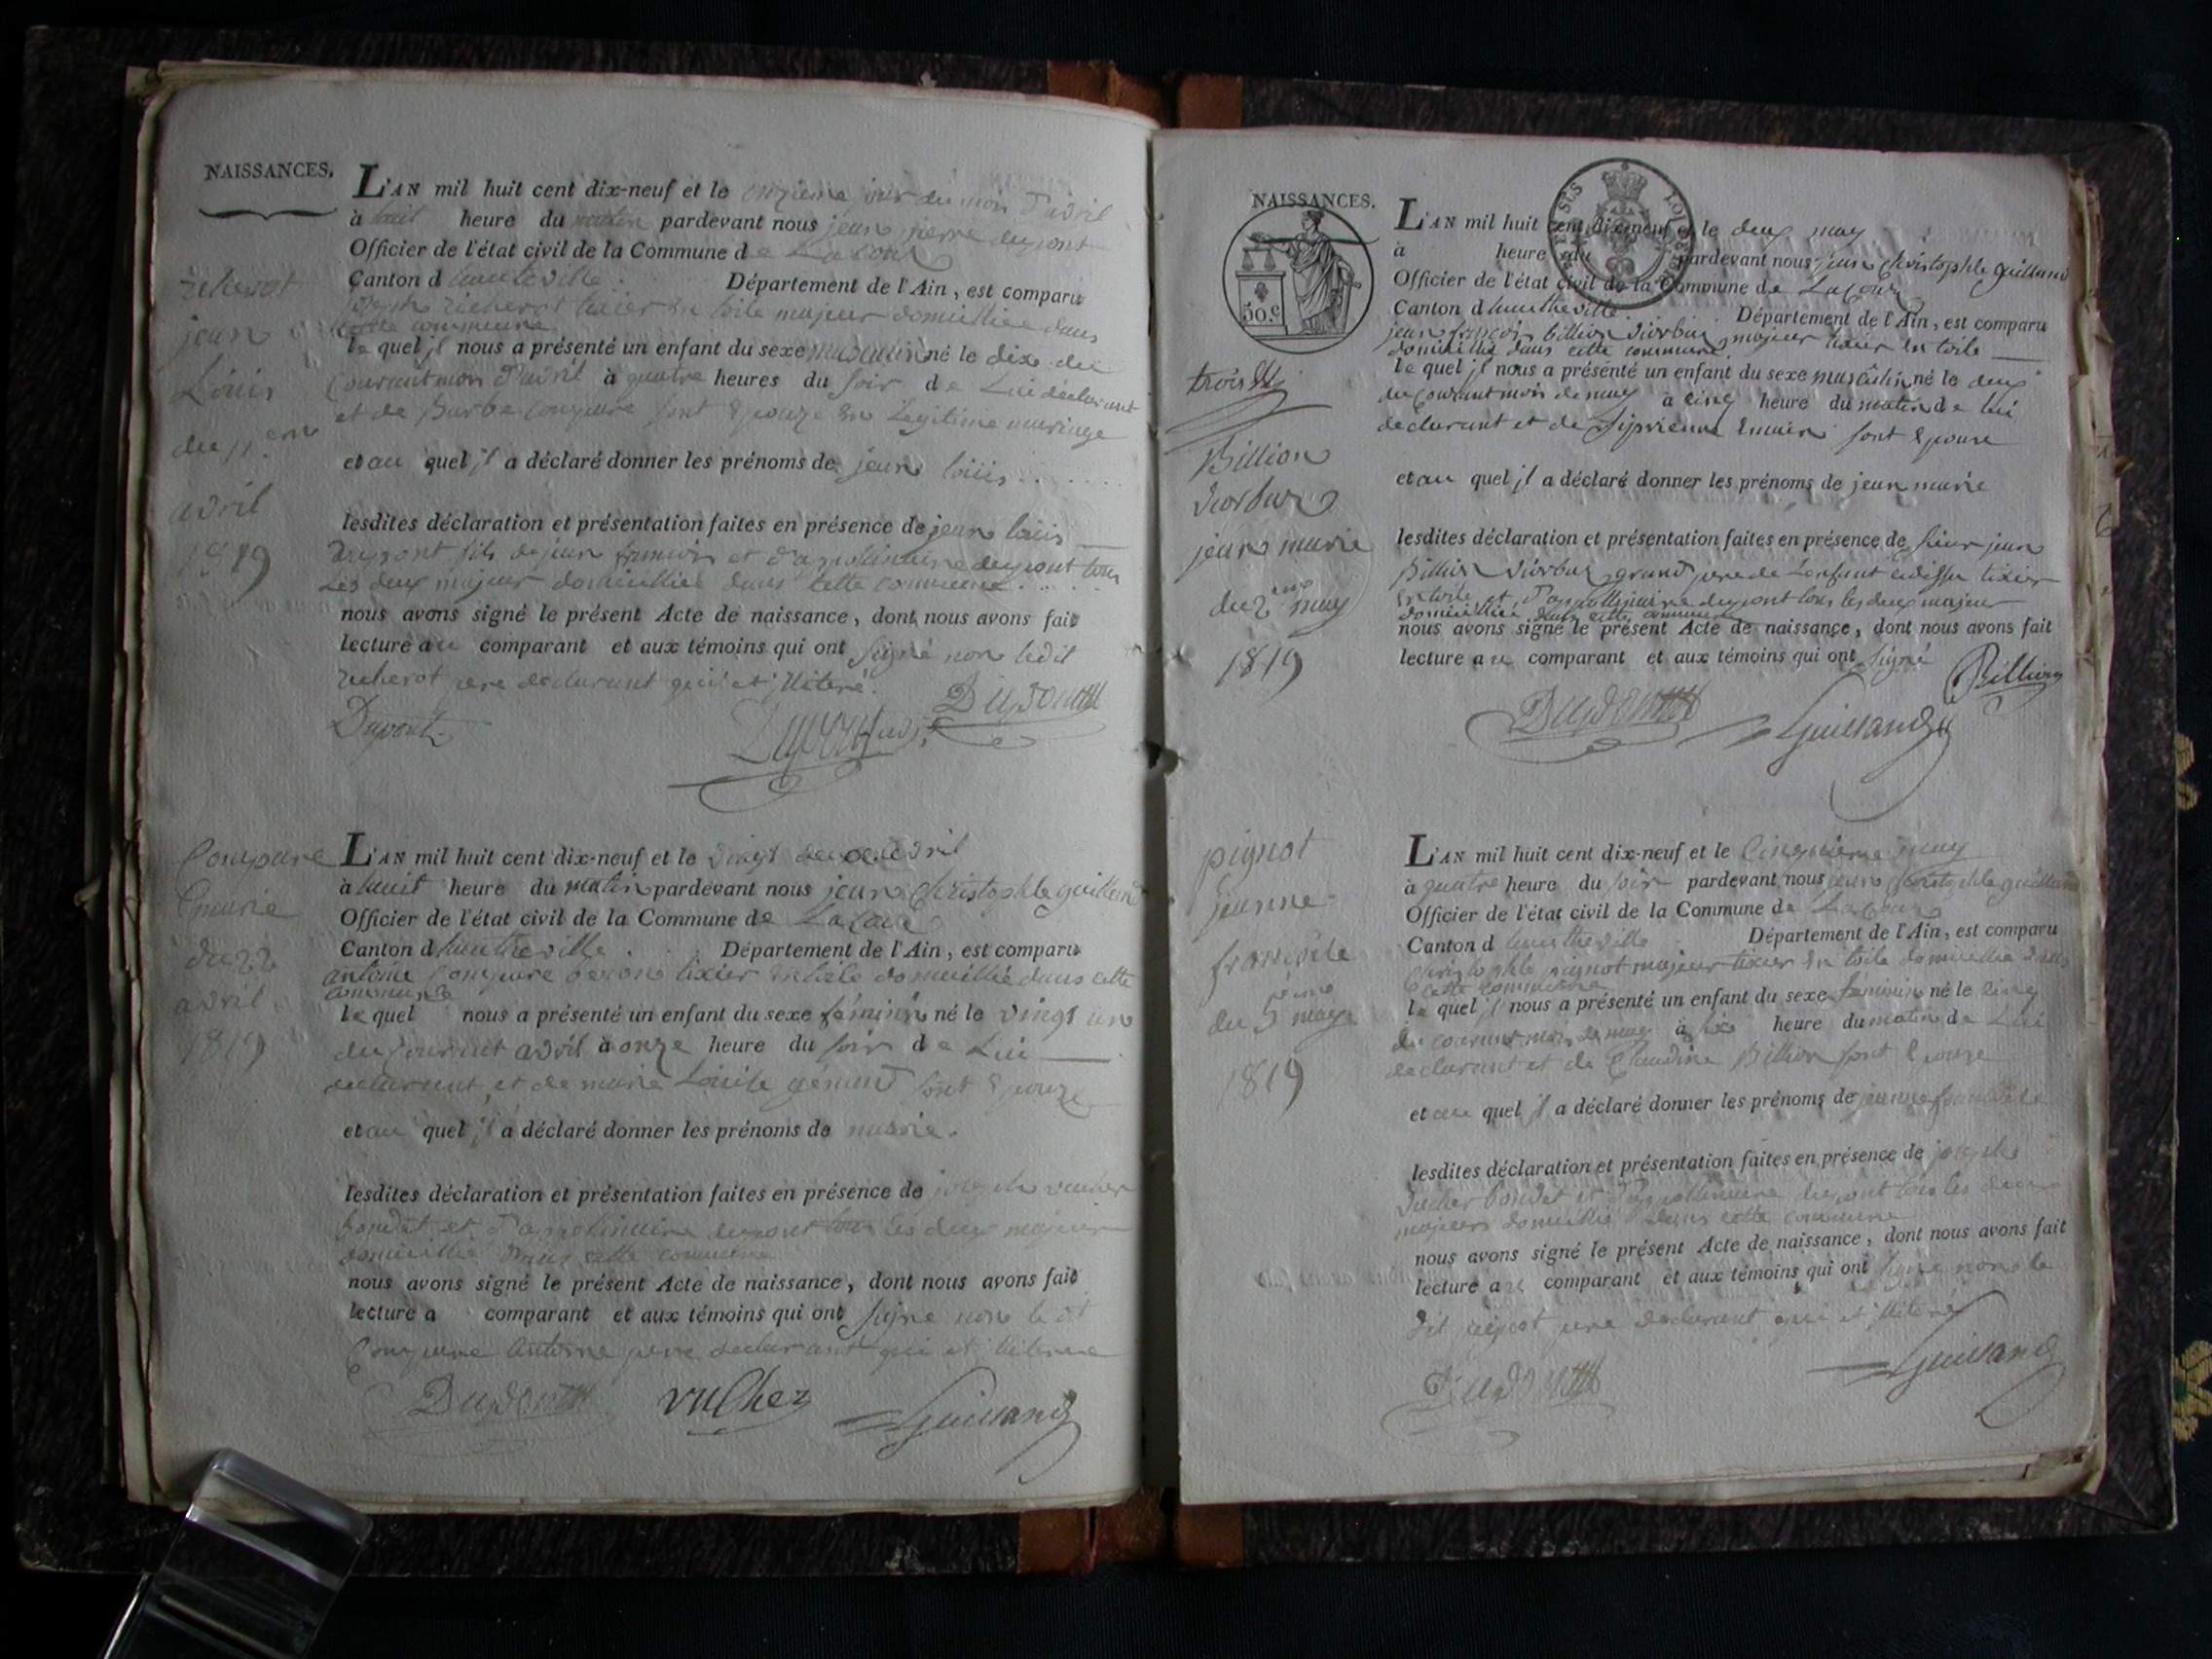 NAISSANCES.
L'AN mil huit cent dix-neuf et le onzieme jour du mois d'avril
à huit heure du matin pardevant nous jean pierre dupont
Officier de l'état civil de la Commune de Lacoux
Canton d hauteville Département de l'Ain, est comparu
richerot tixier en toile majeur domicilié dans
cette commune
le quel il nous a présenté un enfant du sexe masculin né le dix du
courant mois d'avril à quatre heures du soir de Lui déclarant
et de Barbe compare sont épouze en Legitime mariage
et au quel il a déclaré donner les prénoms de jean loüis
lesdites déclaration et présentation faites en présence de jean loüis
dupont fils de jean francois et d'apolinaire dupont tous
Les deux majeur domicilliés dans cette commune
nous avons signé le présent Acte de naissance, dont nous avons fait
lecture au comparant et aux témoins qui ont signé non ledit
richerot pere declarant qui et illiteré.
Dupont
Dupont
richerot
jean
Loüis
du 11.
avril
1819
L'AN mil huit cent dix-neuf et le vingt deux avril
à huit heure du matin pardevant nous jean Christophle guilland
Officier de l'état civil de la Commune de Lacoux
Canton d hautheville Département de l'Ain, est comparu
antoine Compare tixier en toile domicillié dans cette
commune
le quel nous a présenté un enfant du sexe féminin né le vingt un
du courant avril à onze heure du soir de Lui
declarant, et de marie Loüise sont epouze
et au quel il a déclaré donner les prénoms de marie.
lesdites déclaration et présentation faites en présence de joseph vucher
bondet et d'apollinaire dupont tous les deux majeur
domicillié dans cette commune
nous avons signé le présent Acte de naissance, dont nous avons fait
lecture a comparant et aux témoins qui ont signé non le dit
Compare Antoine pere declarant qui et
Dupont vuCher Guilland
Compare
marie
du 22
avril
1819
NAISSANCES.
50.c
L'AN mil huit cent dix-neuf et le deux may
à heure du pardevant nous jean Christophle guilland
Officier de l'état civil de la Commune de Lacoux
Canton d hautheville Département de l'Ain, est comparu
jean françois billion majeur tixier en toile
domicillié dans cette commune
le quel il nous a présenté un enfant du sexe masculin né le deux
du courant mois de may à cinq heure du matin de lui
declarant et de sont epouse
et au quel il a déclaré donner les prénoms de jean marie
lesdites déclaration et présentation faites en présence de sieur jean
Billion grand pere de Lenfant tixier
en toile et d'apollinaire dupont tous les deux majeur
domicillié dans cette commune
nous avons signé le présent Acte de naissance, dont nous avons fait
lecture au comparant et aux témoins qui ont signé
Billion
Dupont Guilland
trois
Billion
jean marie
du 2 may
1819
L'AN mil huit cent dix-neuf et le Cinquieme may
à quatre heure du soir pardevant nous jean Christophle guilland
Officier de l'état civil de la Commune de Lacoux
Canton d hautheville Département de l'Ain, est comparu
Christophle pignot majeur tixier en toile domicillié dans
cette commune
le quel il nous a présenté un enfant du sexe féminin né le cinq
du courant mois de may à six heure du matin de Lui
declarant et de Claudine Billion sont epouze
et au quel il a déclaré donner les prénoms de jeanne
lesdites déclaration et présentation faites en présence de joseph
vucher bondet et d'apollinaire dupont tous les deux
majeurs domicillié dans cette commune
nous avons signé le présent Acte de naissance, dont nous avons fait
lecture au comparant et aux témoins qui ont signé non le
dit pignot pere declarant qui et illiteré
Dupont Guilland
pignot
jeanne
du 5 may
1819